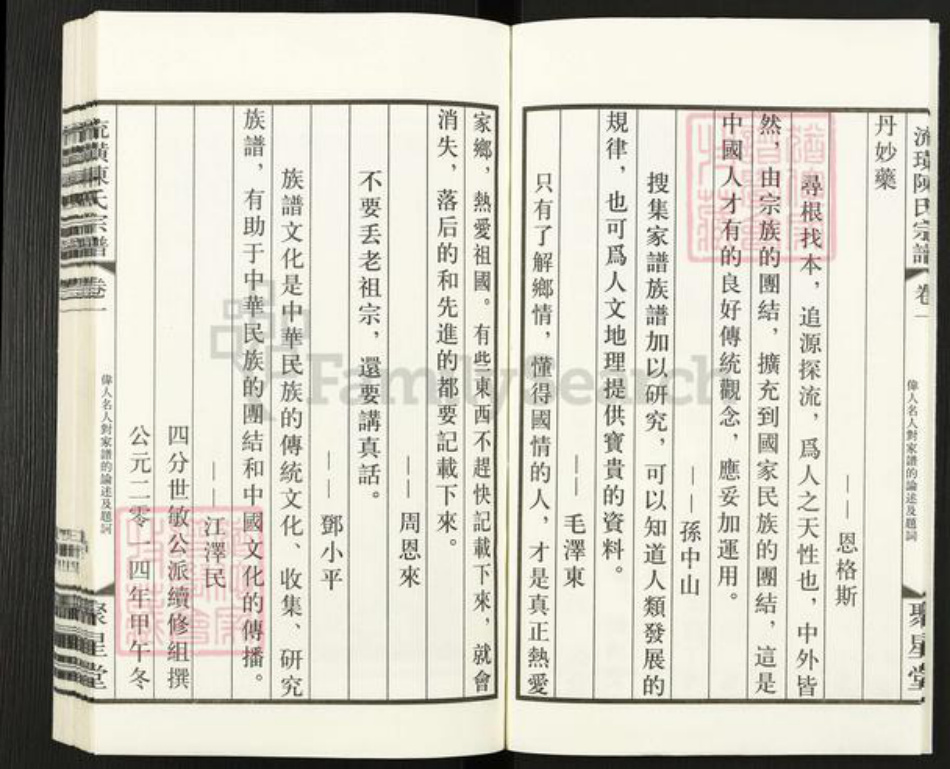 流璜陳氏宗譜
卷一
偉人名人對家譜的論述及題詞
聚星堂
丹妙藥
——恩格斯
尋根找本，追源探流，爲人之天性也，中外皆
然，由宗族的團結，擴充到國家民族的團結，這是
中國人才有的良好傳統觀念，應妥加運用。
——孫中山
搜集家譜族譜加以研究，可以知道人類發展的
規律，也可爲人文地理提供寶貴的資料。
——毛澤東
只有了解鄉情，懂得國情的人，才是真正熱愛
家鄉，熱愛祖國。有些東西不趕快記載下來，就會
消失，落后的和先進的都要記載下來。
——周恩來
不要丢老祖宗，還要講真話。
——鄧小平
族譜文化是中華民族的傳統文化、收集、研究
族譜，有助于中華民族的團結和中國文化的傳播。
——江澤民
四分世敏公派續修組撰
公元二零一四年甲午冬
流璜陳氏宗譜
卷一
偉人名人對家譜的論述及題詞
聚星堂
FamilySearch